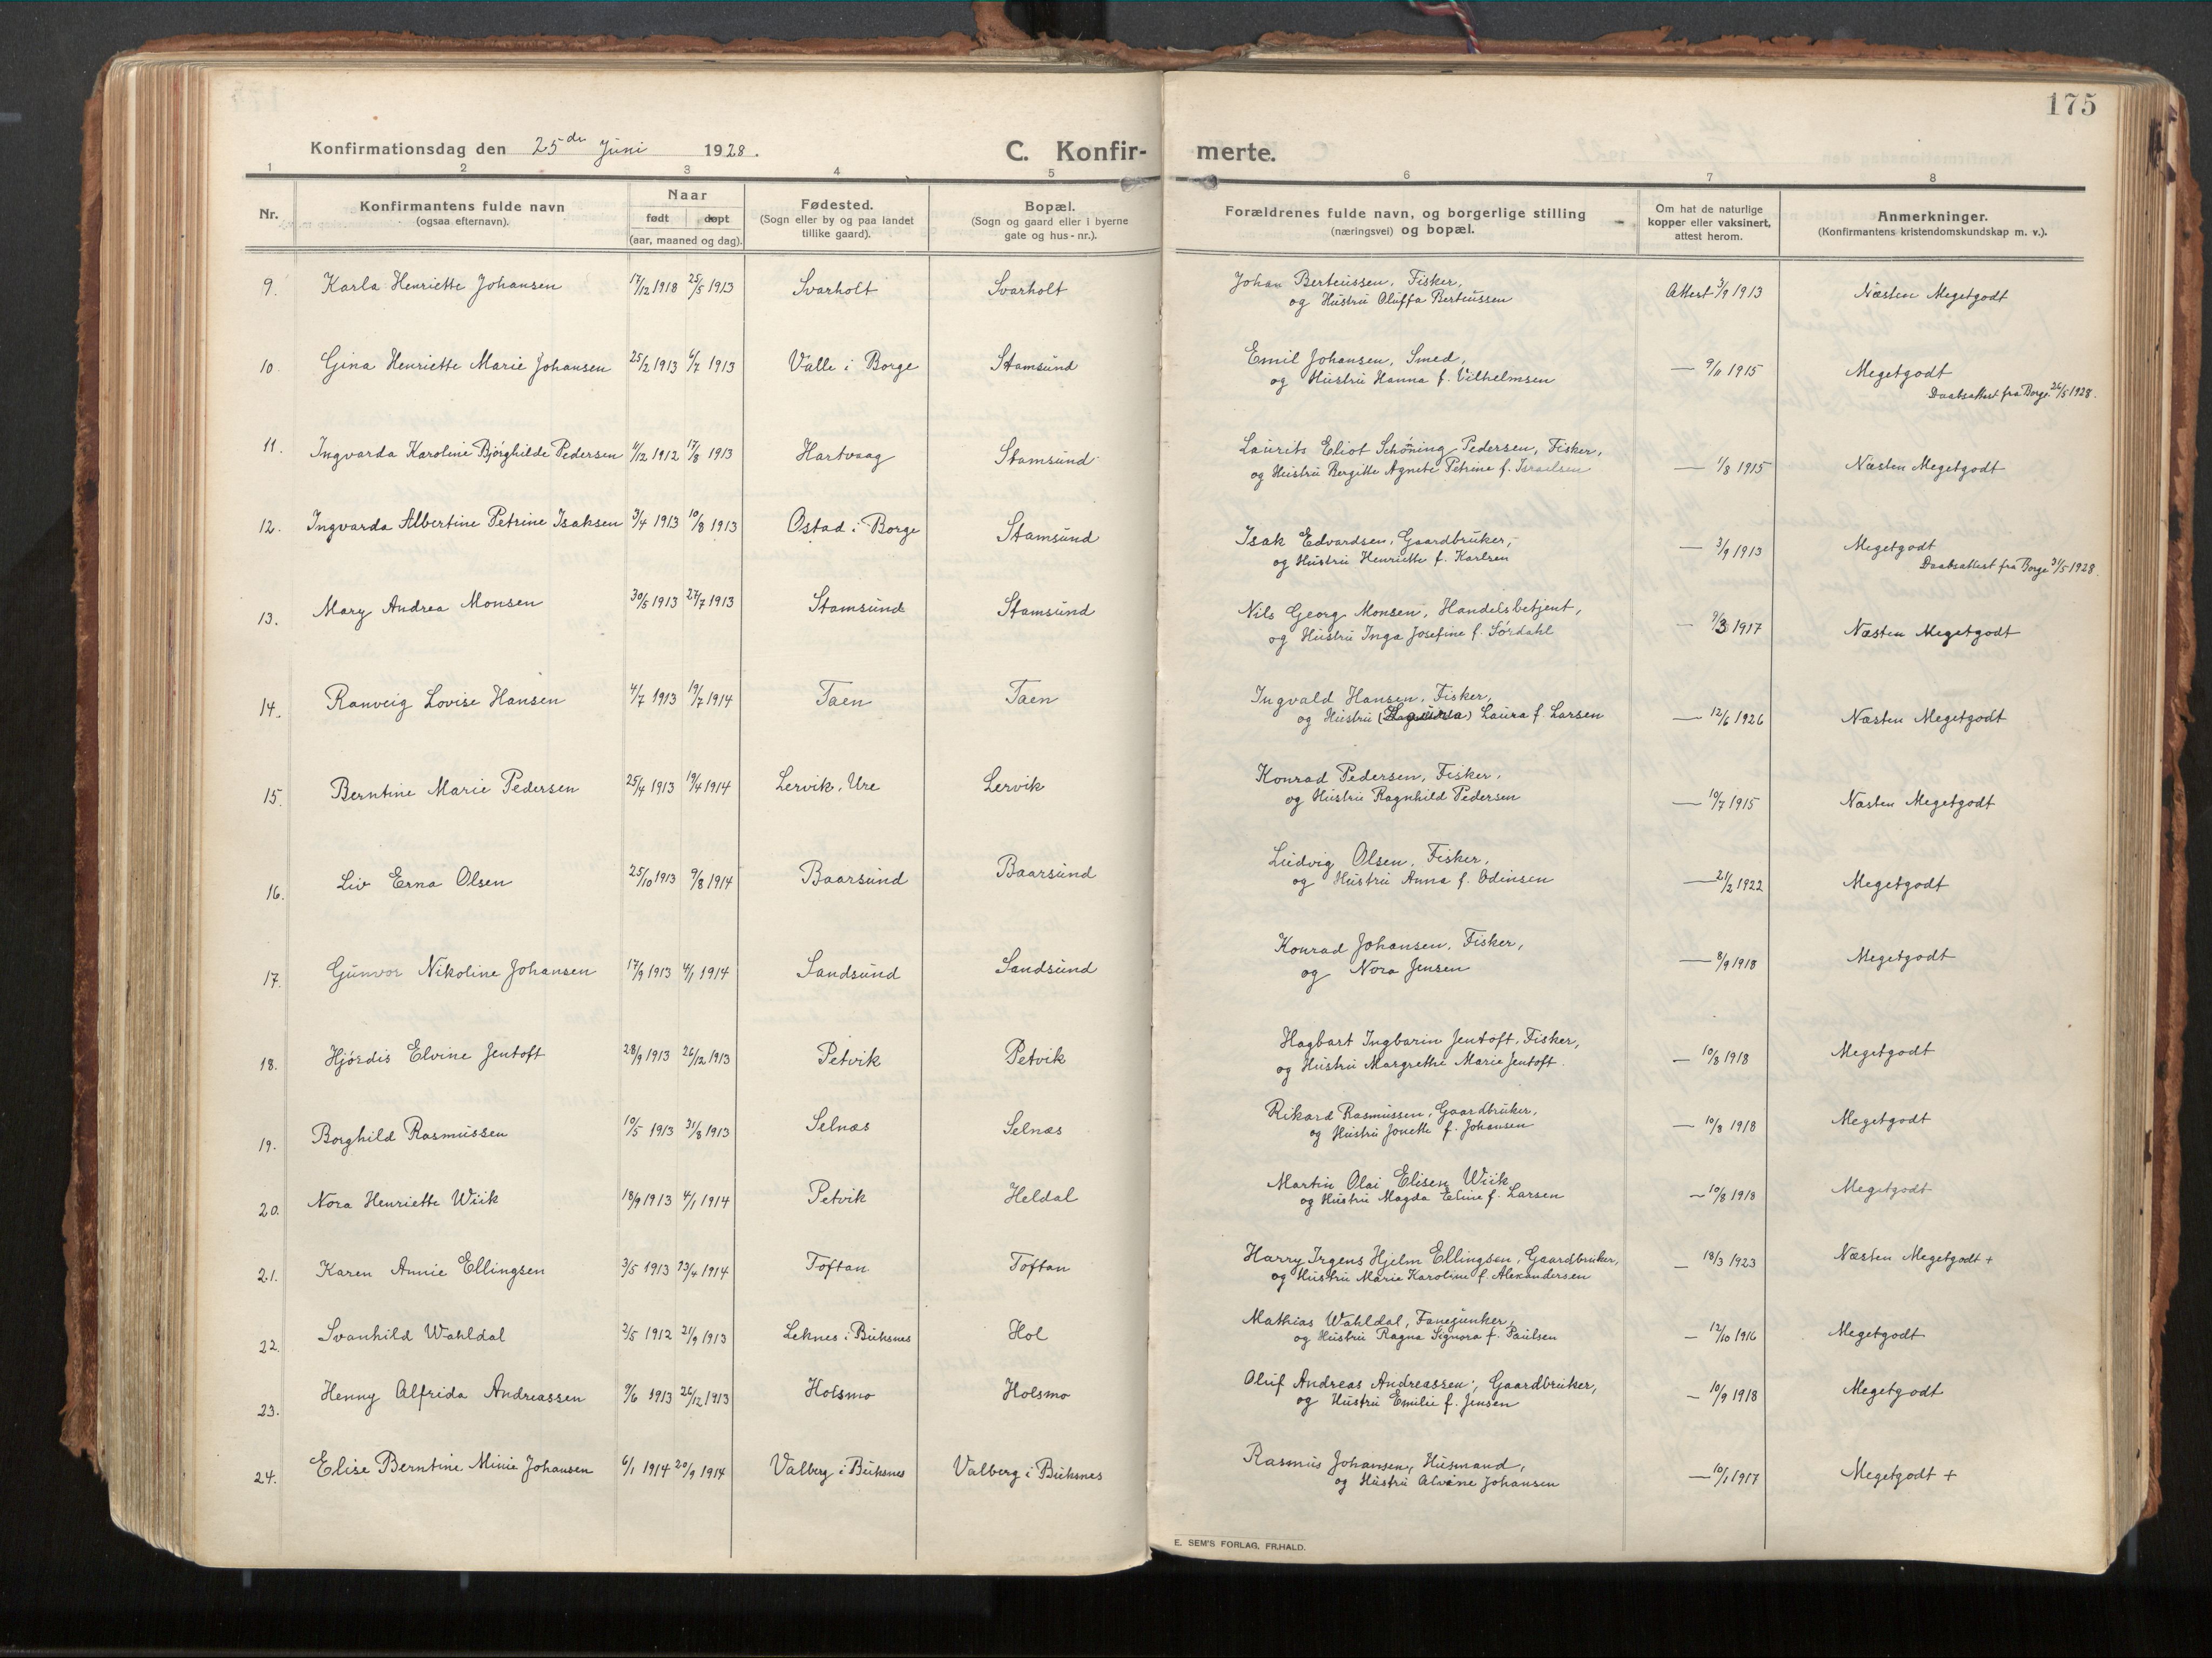 175
Konfirmationsdag den 25de Juni 1928.
C. Konfir-merte.
1 2 3 4 5 6 7 8
Nr.
Konfirmantens fulde navn
(ogsaa efternavn).
Naar
født døpt
(aar, maaned og dag).
Fødested.
(Sogn eller by og paa landet
tillike gaard).
Bopæl.
(Sogn og gaard eller i byerne
gate og hus-nr.).
Forældrenes fulde navn, og borgerlige stilling
(næringsvei) og bopæl.
Om hat de naturlige
kopper eller vaksinert,
attest herom.
Anmerkninger.
(Konfirmantens kristendomskundskap m. v.).
9. Karla Henriette Johansen 17/12 1918 25/5 1913 Svarholt Svarholt Johan Berteussen, Fisker, Attest 3/9 1913 Næsten Megetgodt
og Hustru Oluffa Berteussen
10 Gina Henriette Marie Johansen 25/2 1913 6/7 1913 Valle i Borge Stamsund Emil Johansen, Smed, — 9/11 1915 Megetgodt
og Hustru Hanna f. Vilhelmsen Daabsattest fra Borge 26/5 1928.
11. Ingvarda Karoline Bjørghilde Pedersen 11/12 1912 17/8 1913 Hartvaag Stamsund Laurits Eliot Schöning Pedersen, Fisker, — 1/8 1915 Næsten Megetgodt
og Hustru Bergitte Agnete Petrine f. Israelsen
12. Ingvarda Albertine Petrine Isaksen 3/4 1913 10/8 1913 Ostad i Borge Stamsund Isak Edvardsen, Gaardbruker, — 3/9 1913 Megetgodt
og Hustru Henriette f. Karlsen Daabsattest fra Borge 31/5 1928.
13. Mary Andrea Monsen 30/5 1913 27/7 1913 Stamsund Stamsund Nils Georg Monsen, Handelsbetjent, — 9/3 1917 Næsten Megetgodt
og Hustru Inga Josefine f. Sørdahl
14. Ranveig Lovise Hansen 4/7 1913 19/7 1914 Taen Taen Ingvald Hansen, Fisker, — 12/6 1926 Næsten Megetgodt
og Hustru Laura f. Larsen
15. Berntine Marie Pedersen 25/4 1913 19/4 1914 Lervik, Ure Lervik Konrad Pedersen, Fisker, — 10/7 1915 Næsten Megetgodt
og Hustru Ragnhild Pedersen
16. Liv Erna Olsen 25/10 1913 9/8 1914 Baarsund Baarsund Ludvig Olsen, Fisker, — 21/2 1922 Megetgodt
og Hustru Anna f. Odinsen
17. Gunvor Nikoline Johansen 17/9 1913 4/1 1914 Sandsund Sandsund Konrad Johansen, Fisker, — 8/9 1918 Megetgodt
og Nora Jensen
18. Hjørdis Elvine Jentoft 28/9 1913 26/12 1913 Petvik Petvik Hagbart Ingbarin Jentoft, Fisker, — 10/8 1918 Megetgodt
og Hustru Margrethe Marie Jentoft.
19. Borghild Rasmussen 10/5 1913 31/8 1913 Selnæs Selnæs Rikard Rasmussen, Gaardbruker, — 10/8 1918 Megetgodt
og Hustru Jonette f. Johansen
20. Nora Henriette Wiik 18/9 1913 4/1 1914 Petvik Heldal Martin Olai Elisen Wiik — 10/8 1918 Megetgodt
og Hustru Magda Eline f. Larsen
21. Karen Annie Ellingsen 3/5 1913 13/4 1914 Toftan Toftan Harry Irgens Hjelm Ellingsen, Gaardbruker, — 18/3 1923 Næsten Megetgodt +
og Hustru Marie Karoline f. Alexandersen
22. Svanhild Wahldal 2/5 1912 21/9 1913 Leknes i Buksnes Hol Mathias Wahldal, Fanejunker, — 12/10 1916 Megetgodt
og Hustru Ragna Signora f. Paulsen
23. Henny Alfrida Andreassen 9/6 1913 26/12 1913 Holsmo Holsmo Oluf Andreas Andreassen, Gaardbruker, — 10/9 1918 Megetgodt
og Hustru Emilie f. Jensen
24. Elise Berntine Minie Johansen 6/1 1914 20/9 1914 Valberg i Buksnes Valberg i Buksnes Rasmus Johansen, Husmand, — 10/1 1917 Megetgodt +
og Hustru Alvine Johansen
E. SEM'S FORLAG, FR.HALD.